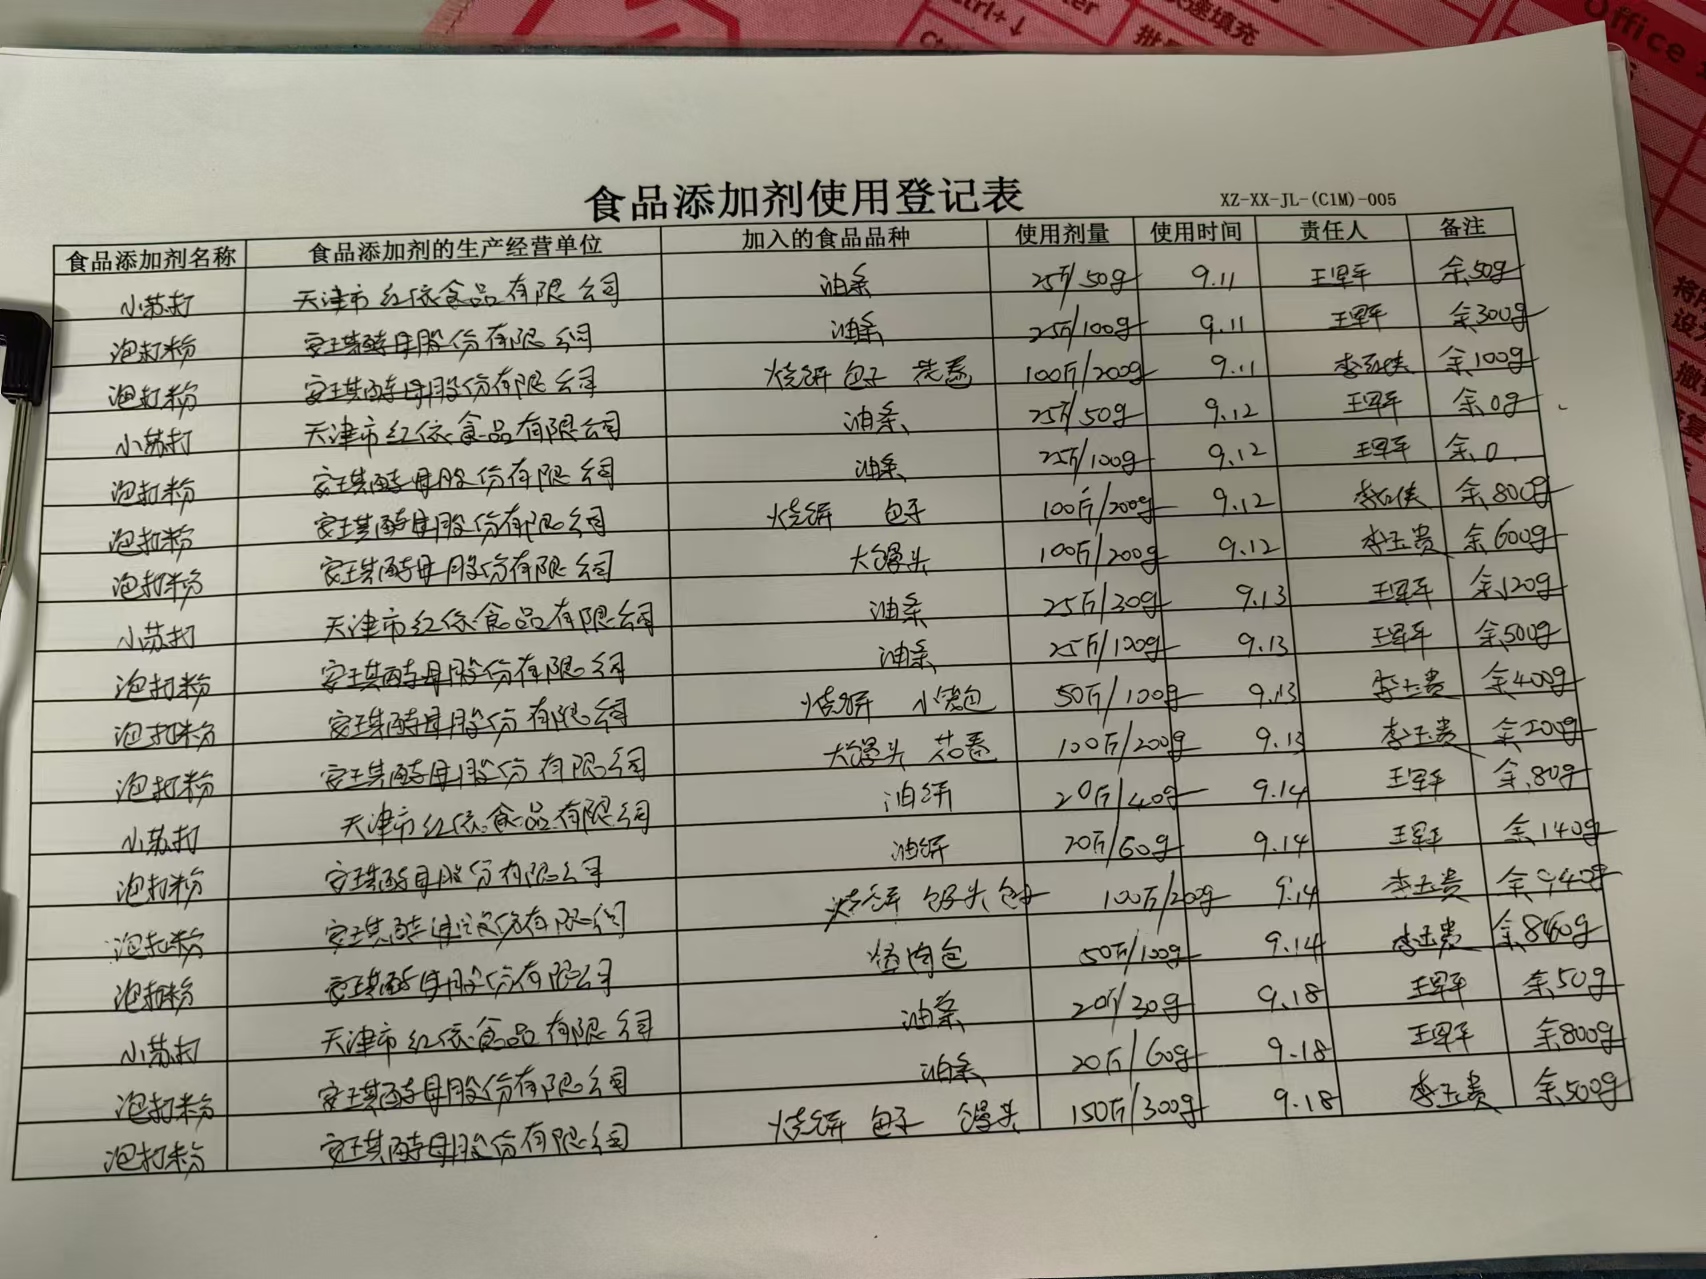 Ctrl+↓
批量
快速填充
Office
食品添加剂使用登记表
XZ-XX-JL-(C1M)-005
食品添加剂名称 食品添加剂的生产经营单位 加入的食品品种 使用剂量 使用时间 责任人 备注
小苏打 天津市红依食品有限公司 油条 25斤/50g 9.11 王军平 余50g
泡打粉 安琪酵母股份有限公司 油条 25斤/100g 9.11 王军平 余300g
泡打粉 安琪酵母股份有限公司 烧饼 包子 花卷 100斤/200g 9.11 李红侠 余100g
小苏打 天津市红依食品有限公司 油条 25斤/50g 9.12 王军平 余0g
泡打粉 安琪酵母股份有限公司 油条 25斤/100g 9.12 王军平 余0.
泡打粉 安琪酵母股份有限公司 烧饼 包子 100斤/200g 9.12 李红侠 余800g
泡打粉 安琪酵母股份有限公司 大馒头 100斤/200g 9.12 李玉贵 余600g
小苏打 天津市红依食品有限公司 油条 25斤/30g 9.13 王军平 余120g
泡打粉 安琪酵母股份有限公司 油条 25斤/100g 9.13 王军平 余500g
泡打粉 安琪酵母股份有限公司 烧饼 小笼包 50斤/100g 9.13 李玉贵 余400g
泡打粉 安琪酵母股份有限公司 大馒头 花卷 100斤/200g 9.13 李玉贵 余200g
小苏打 天津市红依食品有限公司 油饼 20斤/40g 9.14 王军平 余80g
泡打粉 安琪酵母股份有限公司 油饼 20斤/60g 9.14 王军平 余140g
泡打粉 安琪酵母股份有限公司 烧饼 馒头 包子 100斤/200g 9.14 李玉贵 余940g
泡打粉 安琪酵母股份有限公司 酱肉包 50斤/100g 9.14 李玉贵 余860g
小苏打 天津市红依食品有限公司 油条 20斤/30g 9.18 王军平 余50g
泡打粉 安琪酵母股份有限公司 油条 20斤/60g 9.18 王军平 余800g
泡打粉 安琪酵母股份有限公司 烧饼 包子 馒头 150斤/300g 9.18 李玉贵 余500g